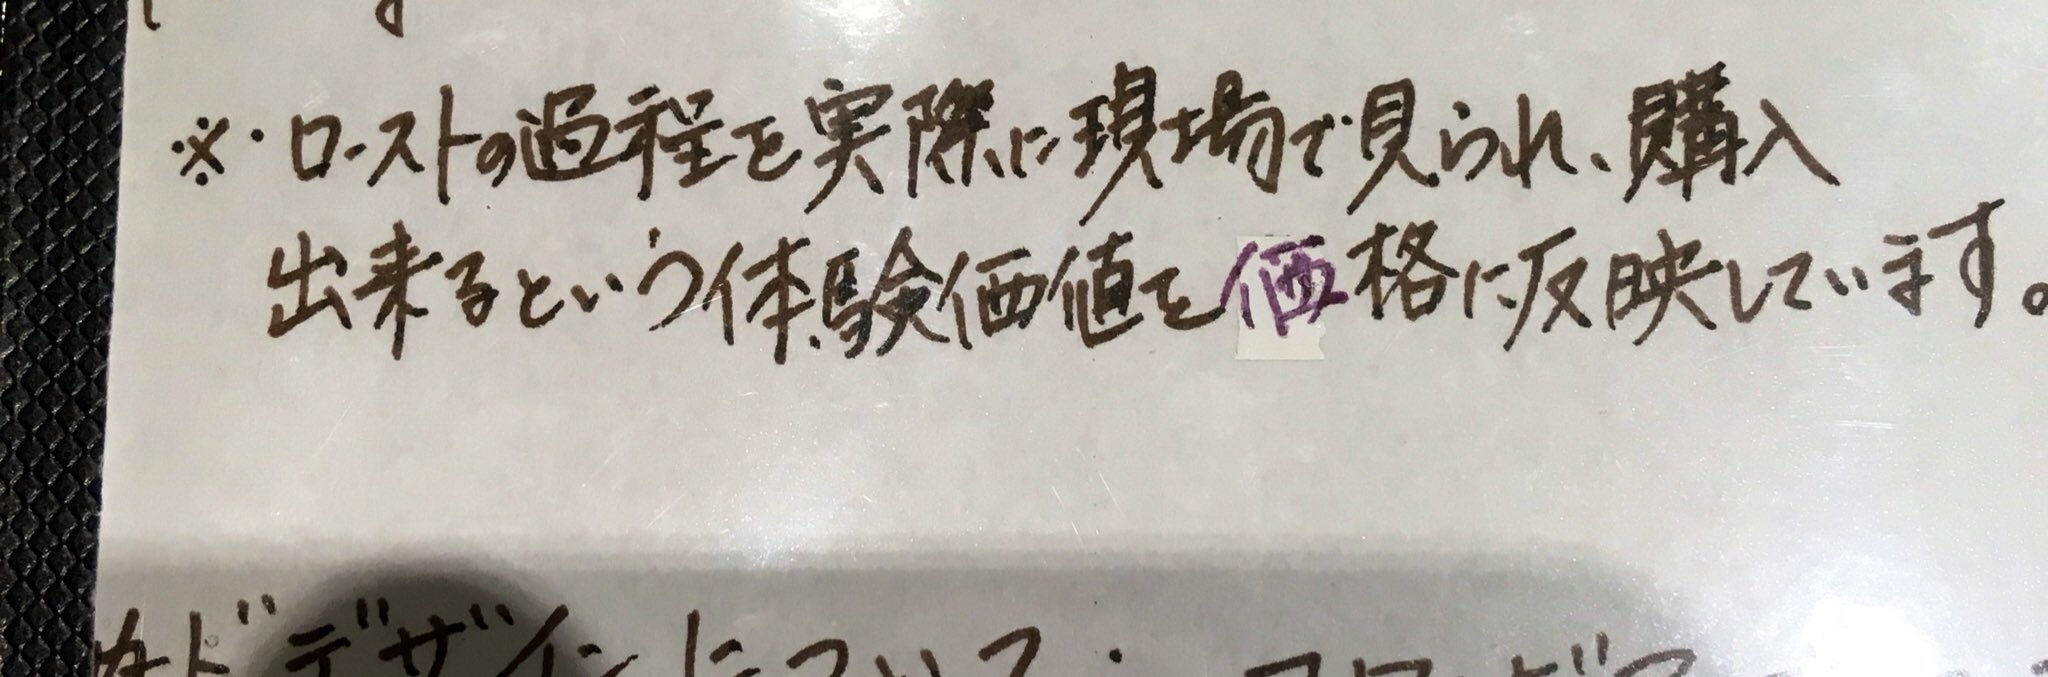 ※・ローストの過程を実際に現場で見られ、購入
出来るという体験価値を価格に反映しています。
カードデザインについて・